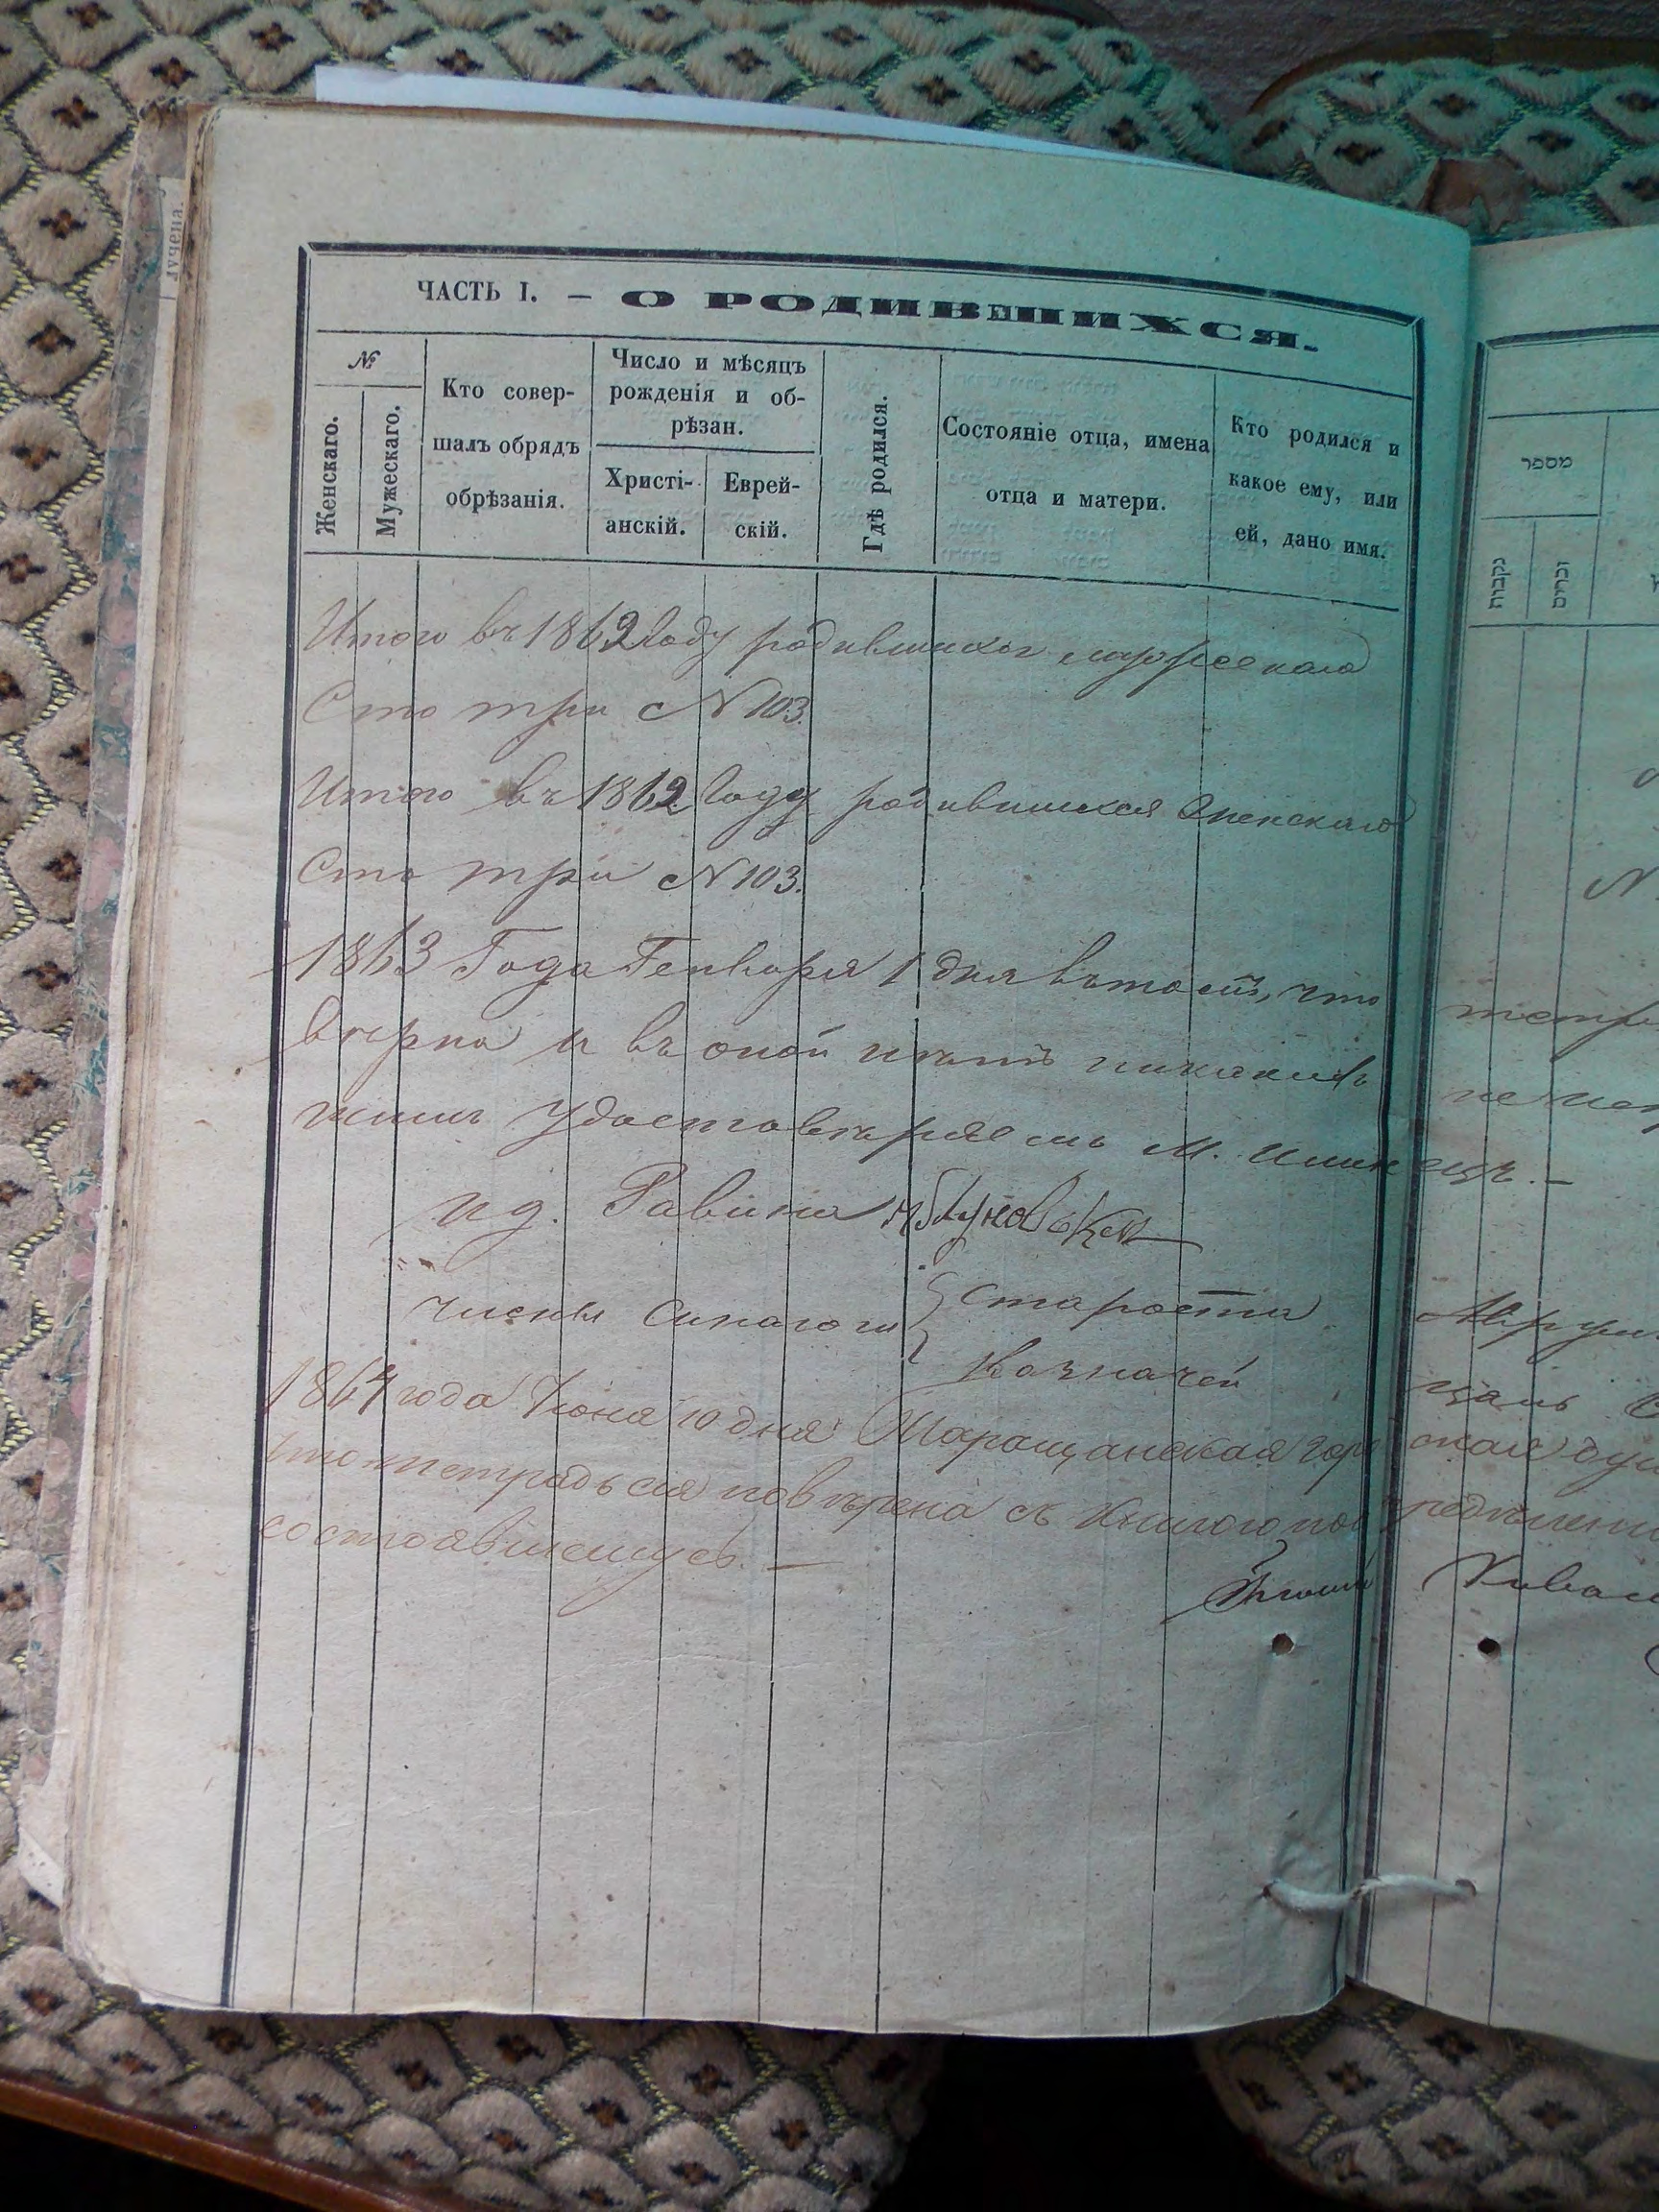 лучена.
ЧАСТЬ I. – О РОДИВШИХСЯ.
№
Женскаго.
Мужескаго.
Кто совер-
шалъ обрядъ
обрѣзанія.
Число и мѣсяцъ
рожденія и об-
рѣзан.
Христі-
анскій.
Еврей-
скій.
Гдѣ родился.
Состояніе отца, имена
отца и матери.
Кто родился и
какое ему, или
ей, дано имя.
Итого въ 1862 году родившихся мужескаго
Сто три N 103.
Итого въ 1862 году родившихся женскаго
Сто три N 103.
1863 Года Генваря 1 дня въ томъ, что
вѣрна и въ оной нѣтъ никакихъ
удостовѣряемъ М.
и д. Равина
члены Синагоги { Староста
Казначей
1864 года Іюня 10 дня Таращанская гор
что тетрадь сія повѣрена съ книгою по
состоявшемуся. —
מספר
נקבות
זכרים
N